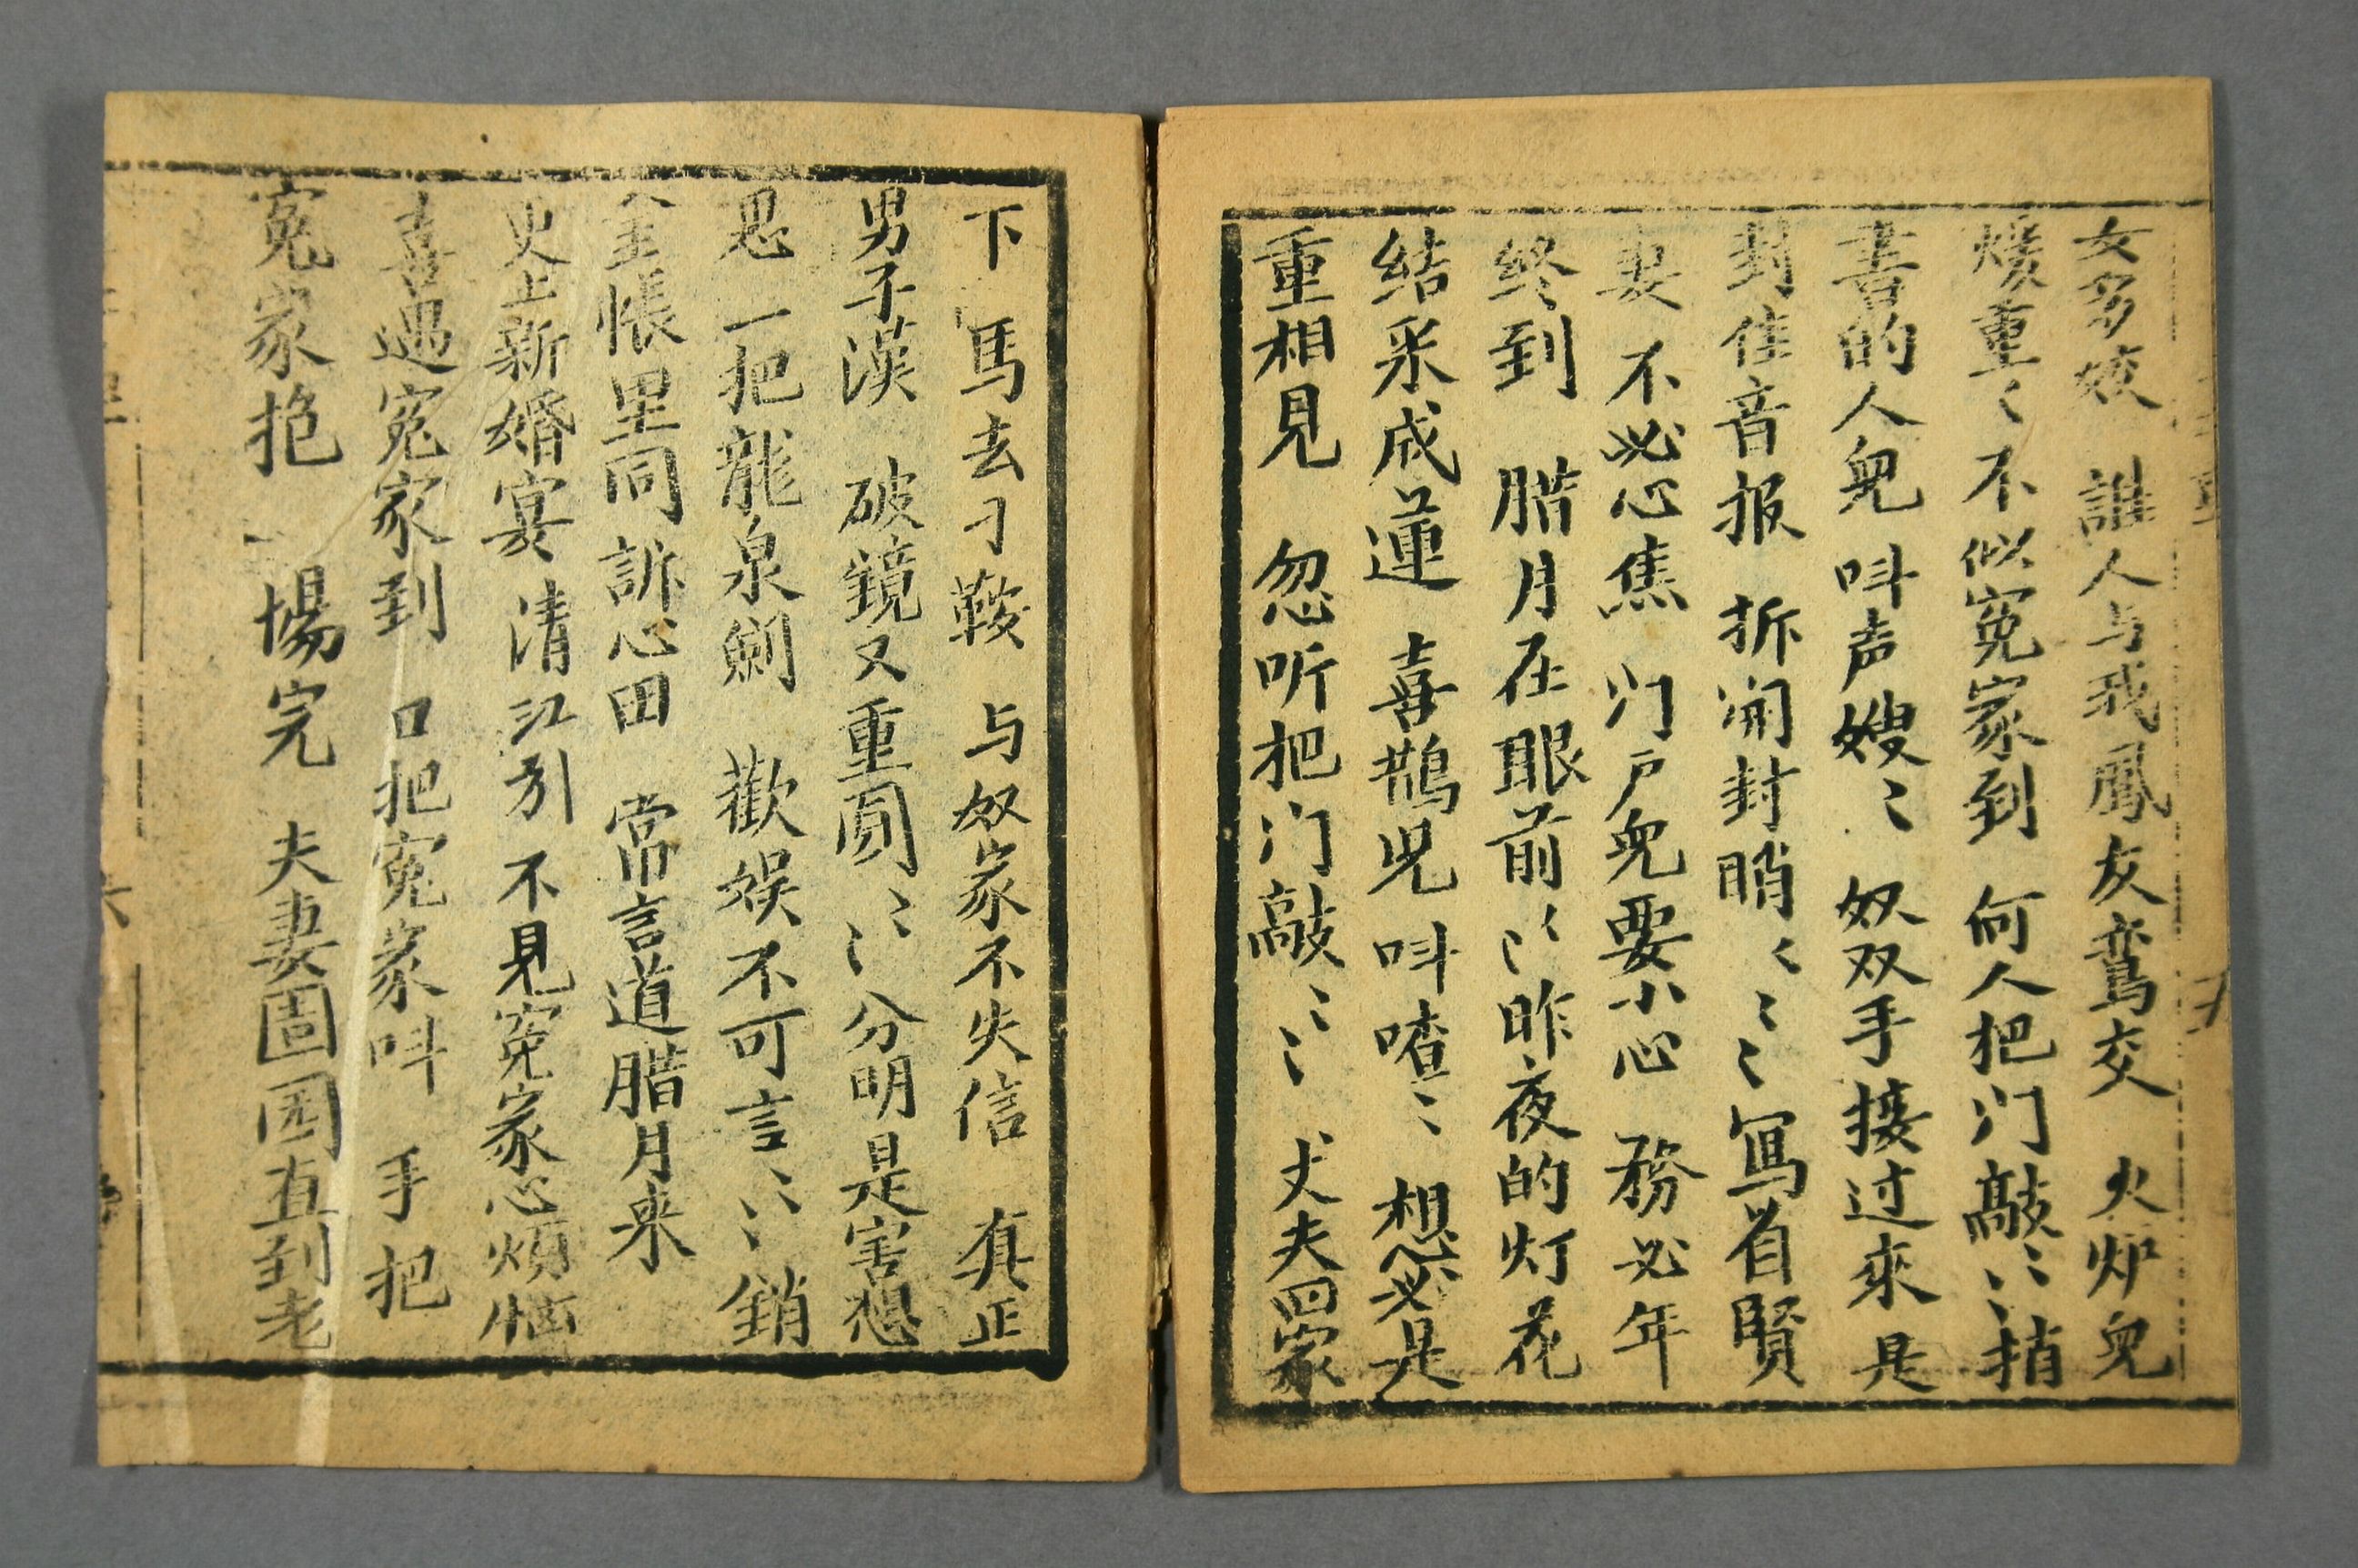 女多姣 誰人与我鳳友鸞交 火炉兒
煖重〻不似冤家到 何人把门敲〻〻捎
書的人兒 呌声嫂〻 奴双手接过來 是
封佳音报 拆開封睄〻〻〻寫着賢
妻 不必心焦 门户兒要小心 務必年
终到 腊月在眼前〻〻昨夜的灯花
结采成蓮 喜鵲児呌喳〻 想必是
重相見 忽听把门敲〻〻 丈夫回家
下馬去刁鞍 与奴家不失信 真正
男子漢 破鏡又重圓〻〻分明是害想
思 一把龍泉劍 歡娱不可言〻〻銷
金帳里同訴心田 常言道腊月来
史上新婚宴 清江引 不見冤家心烦恼
喜遇冤家到 口把冤家呌 手把
冤家抱 一場完 夫妻圊园直到老